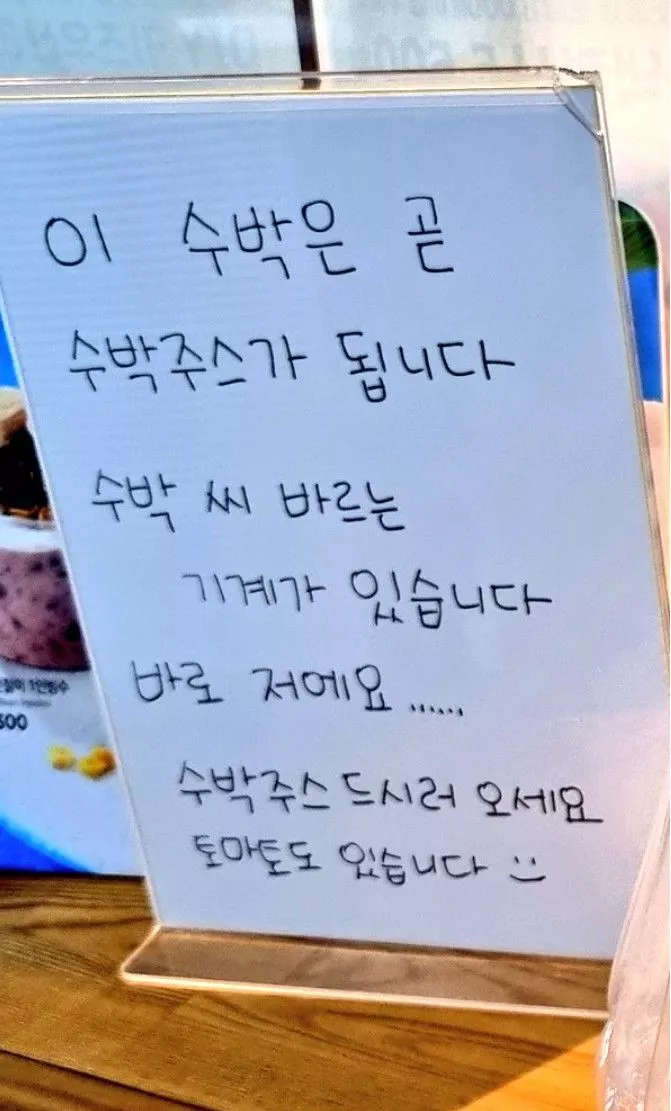 이 수박은 곧
수박주스가 됩니다
수박 씨 바르는
기계가 있습니다
바로 저에요......
수박주스 드시러 오세요
토마토도 있습니다 :)